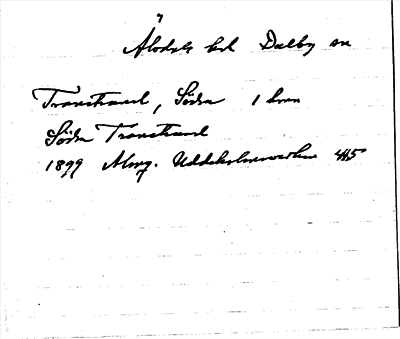 Älvdals hd Dalby sn
Transtrand, Södra 1 hmn
Södra Transtrand
1899 Almg. Uddeholmsverken 415